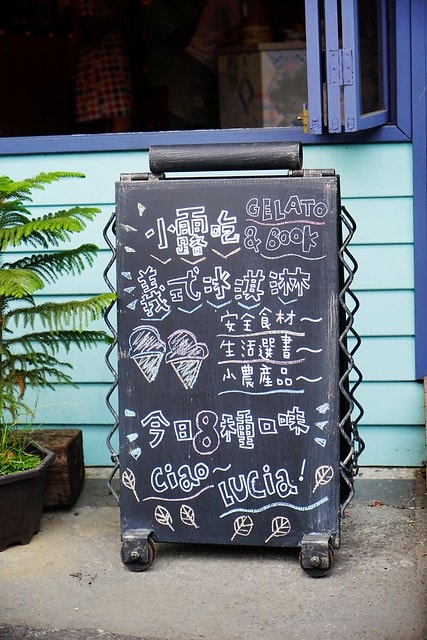 小露吃
GELATO
& BOOK
義式冰淇淋
安全食材～
生活選書～
小農產品～
今日8種口味
Ciao～
LUCIA!